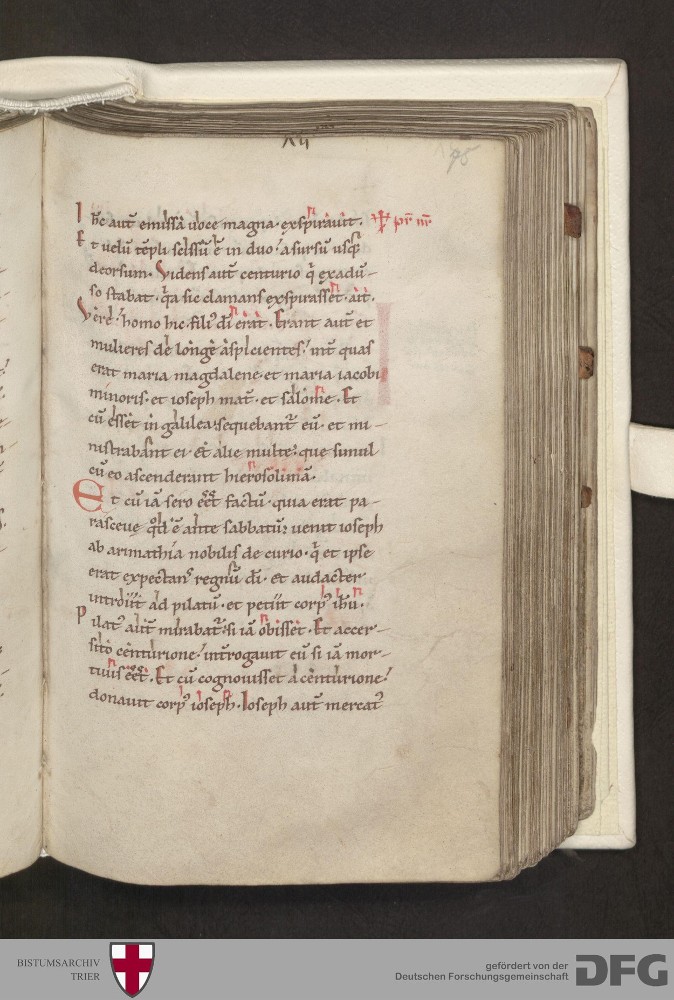 95
Ihc̄ aut̄ emissa uoce magna· exspirauit. pr̄ nr̄
Et uelū tēpli scissū ē in duo· a sursū usq;
deorsum. Videns aut̄ centurio q̄ exadu-
so stabat· q̄a sic clamans exspirasset· ait.
Vere homo hic· fili᷒ dī erat. Erant aut̄ et
mulieres de longe aspicientes· int̄ quas
erat maria magdalene· et maria iacobi
minoris· et ioseph mat̄· et salome. Et
cū essēt in galilea· sequebant᷑ eū· et mi-
nistrabant ei· et alie multe· que simul
cū eo ascenderant hierosolimā.
Et cū iā sero eēt factū· quia erat pa-
rasceue qd̄ ē ante sabbatū· uenit ioseph
ab arimathia nobilis de curio· q̄ et ipse
erat expectans regnū dī· et audacter
introiit ad pilatū· et petiit corp᷒ ih̄u.
Pilat᷒ aut̄ mirabat᷑ si iā obisset. Et accer-
sito centurione· int̄rogauit eū si iā mor-
tuus eēt. Et cū cognouisset a centurione·
donauit corp᷒ ioseph. Ioseph aut̄ mercat᷒
BISTUMSARCHIV
TRIER
gefördert von der
Deutschen Forschungsgemeinschaft
DFG